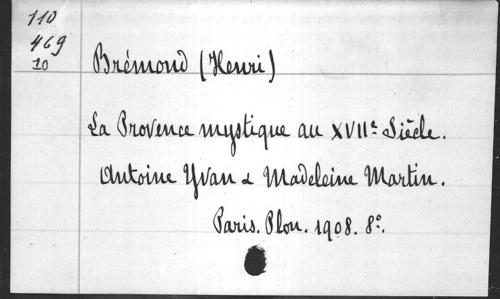 110
469
10
Brémond (Henri)
La Provence mystique au XVIIe Siècle.
Antoine Yvan & Madeleine Martin.
Paris. Plon. 1908. 8º.